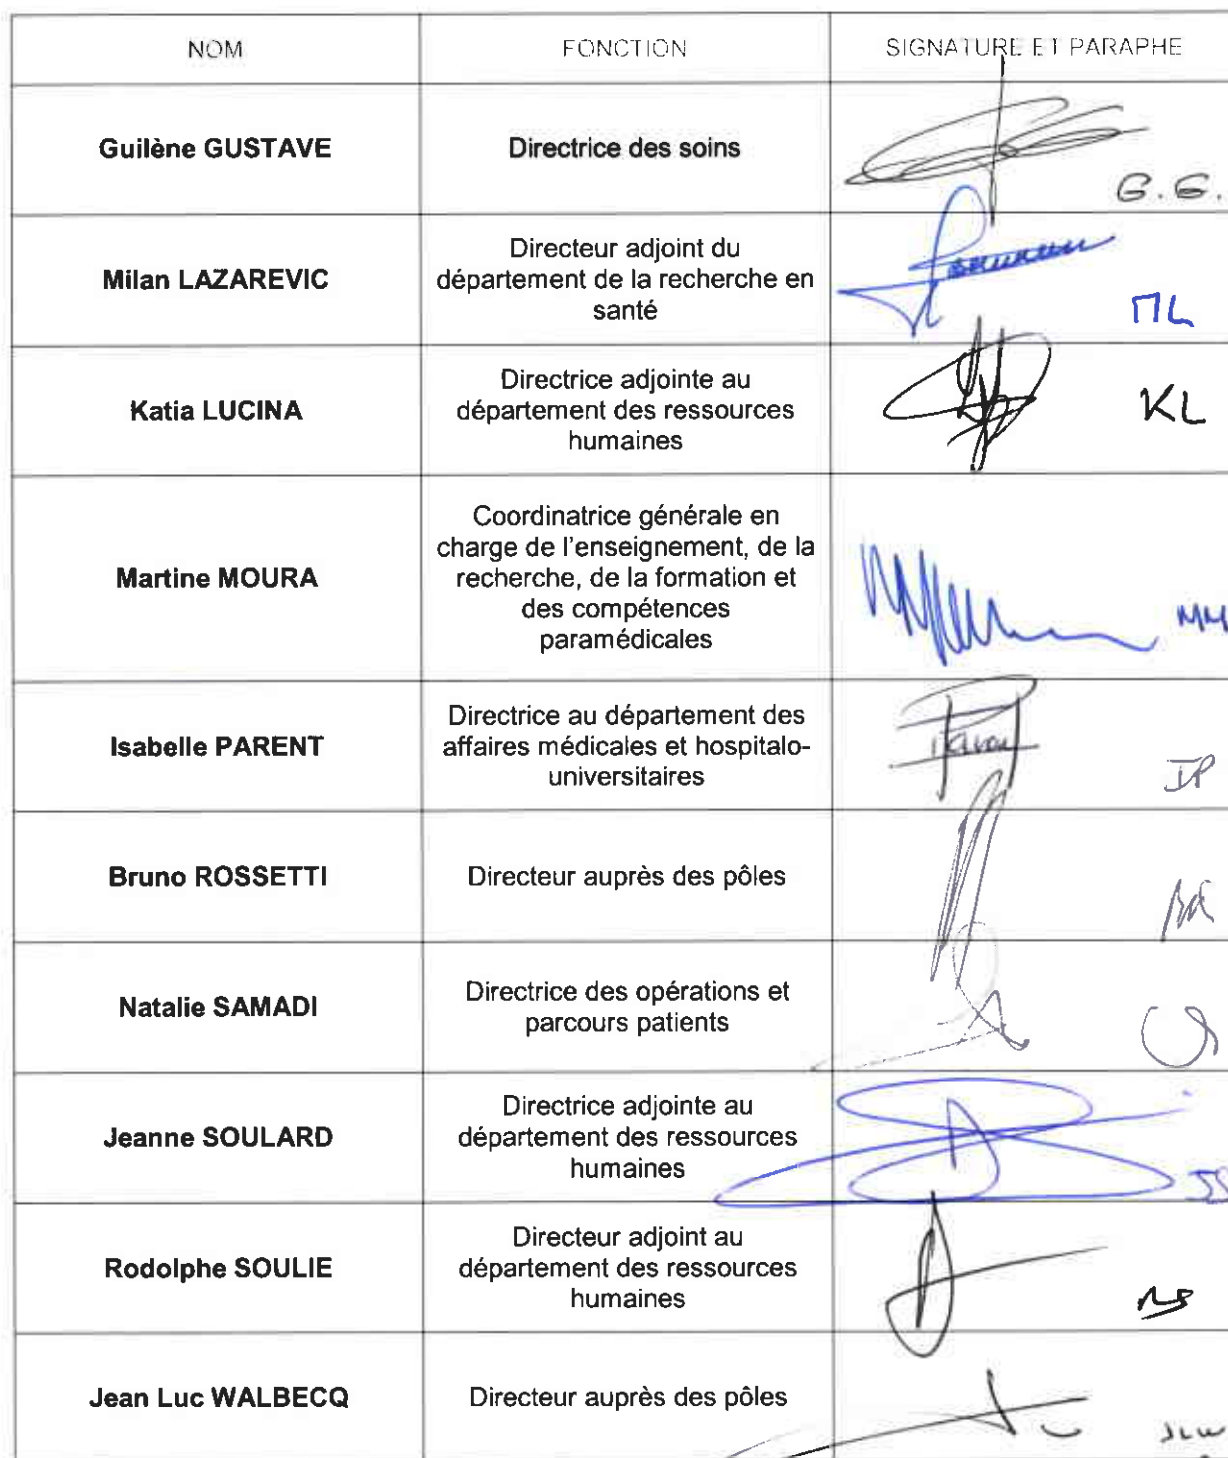 NOM
FONCTION
SIGNATURE ET PARAPHE
Guilène GUSTAVE
Directrice des soins
G.G.
Milan LAZAREVIC
Directeur adjoint du
département de la recherche en
santé
ML
Katia LUCINA
Directrice adjointe au
département des ressources
humaines
KL
Martine MOURA
Coordinatrice générale en
charge de l'enseignement, de la
recherche, de la formation et
des compétences
paramédicales
MM
Isabelle PARENT
Directrice au département des
affaires médicales et hospitalo-
universitaires
IP
Bruno ROSSETTI
Directeur auprès des pôles
BR
Natalie SAMADI
Directrice des opérations et
parcours patients
Jeanne SOULARD
Directrice adjointe au
département des ressources
humaines
JS
Rodolphe SOULIE
Directeur adjoint au
département des ressources
humaines
RS
Jean Luc WALBECQ
Directeur auprès des pôles
JLW